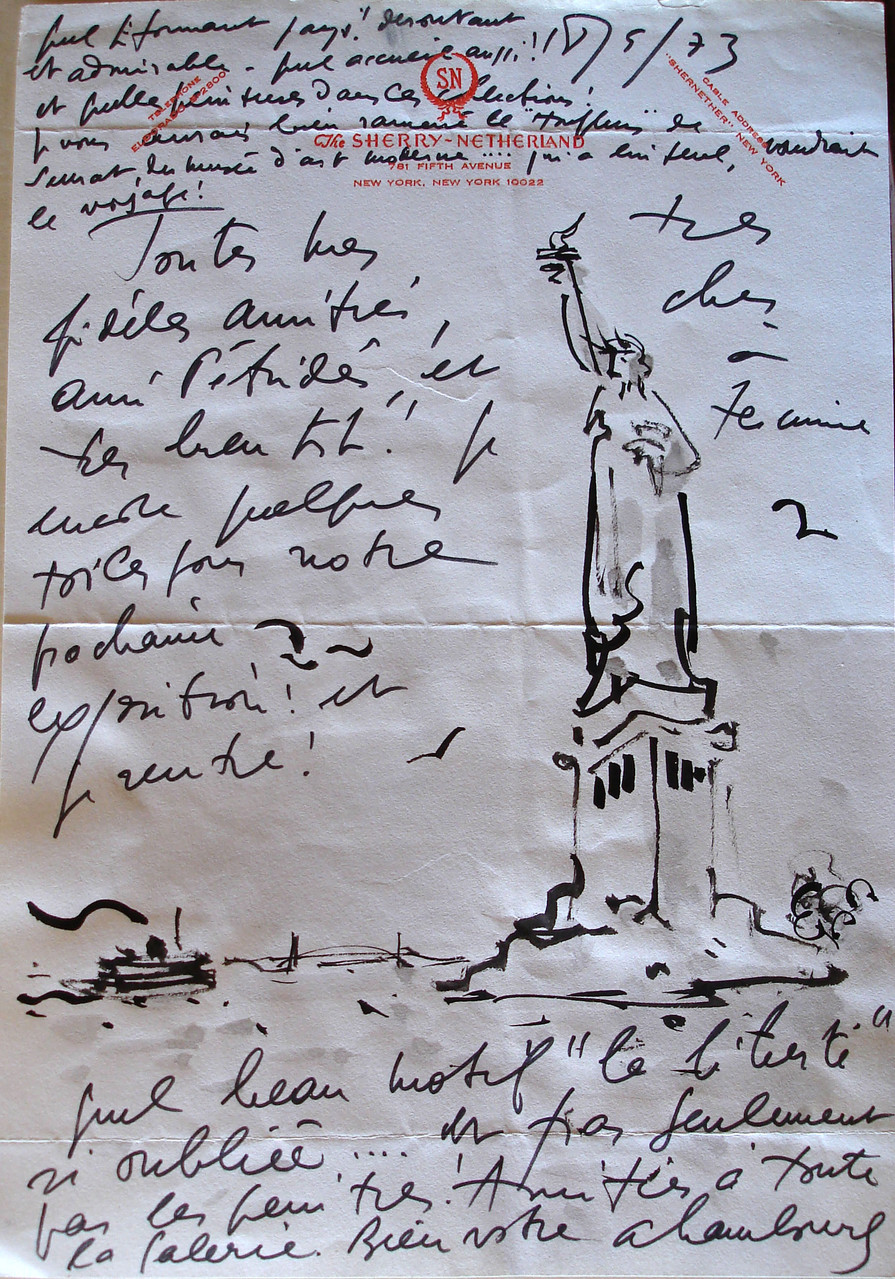 quel étonnant pays! déroutant 18/5/73
et admirable - quel accueil aussi!!
SN
et quelles peintures dans ces collections!
TELEPHONE
ELDORADO 5-2800
CABLE ADDRESS
"SHERNETHER" NEW YORK
je vous aurais bien ramené le "Honfleur" de
The SHERRY-NETHERLAND
Seurat du musée d'art moderne.... qui à lui seul, vaudrait
781 FIFTH AVENUE
NEW YORK, NEW YORK 10022
le voyage!
Toutes mes
fidèles amitiés,
ami Pétridès et
très bientôt! je
encore quelques
toiles pour notre
prochaine
exposition! et
je rentre!
très
cher
à
termine
quel beau motif "la liberté"
si oubliée .... et pas seulement
par les peintres! Amitiés à toute
la Galerie. Bien votre ahambourg